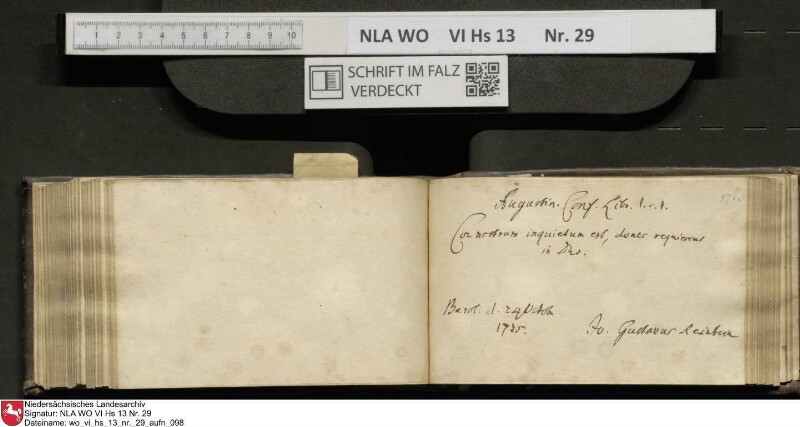 1 2 3 4 5 6 7 8 9 10
NLA WO VI Hs 13 Nr. 29
SCHRIFT IM FALZ
VERDECKT
Augustin. Conf. Libr. I. c. 1.
Cor nostrum inquietum est, donec
in
Berol. d. 24
1735.
Jo. Gustavus Reinbeck
Niedersächsisches Landesarchiv
Signatur: NLA WO VI Hs 13 Nr. 29
Dateiname: wo_vi_hs_13_nr._29_aufn_098